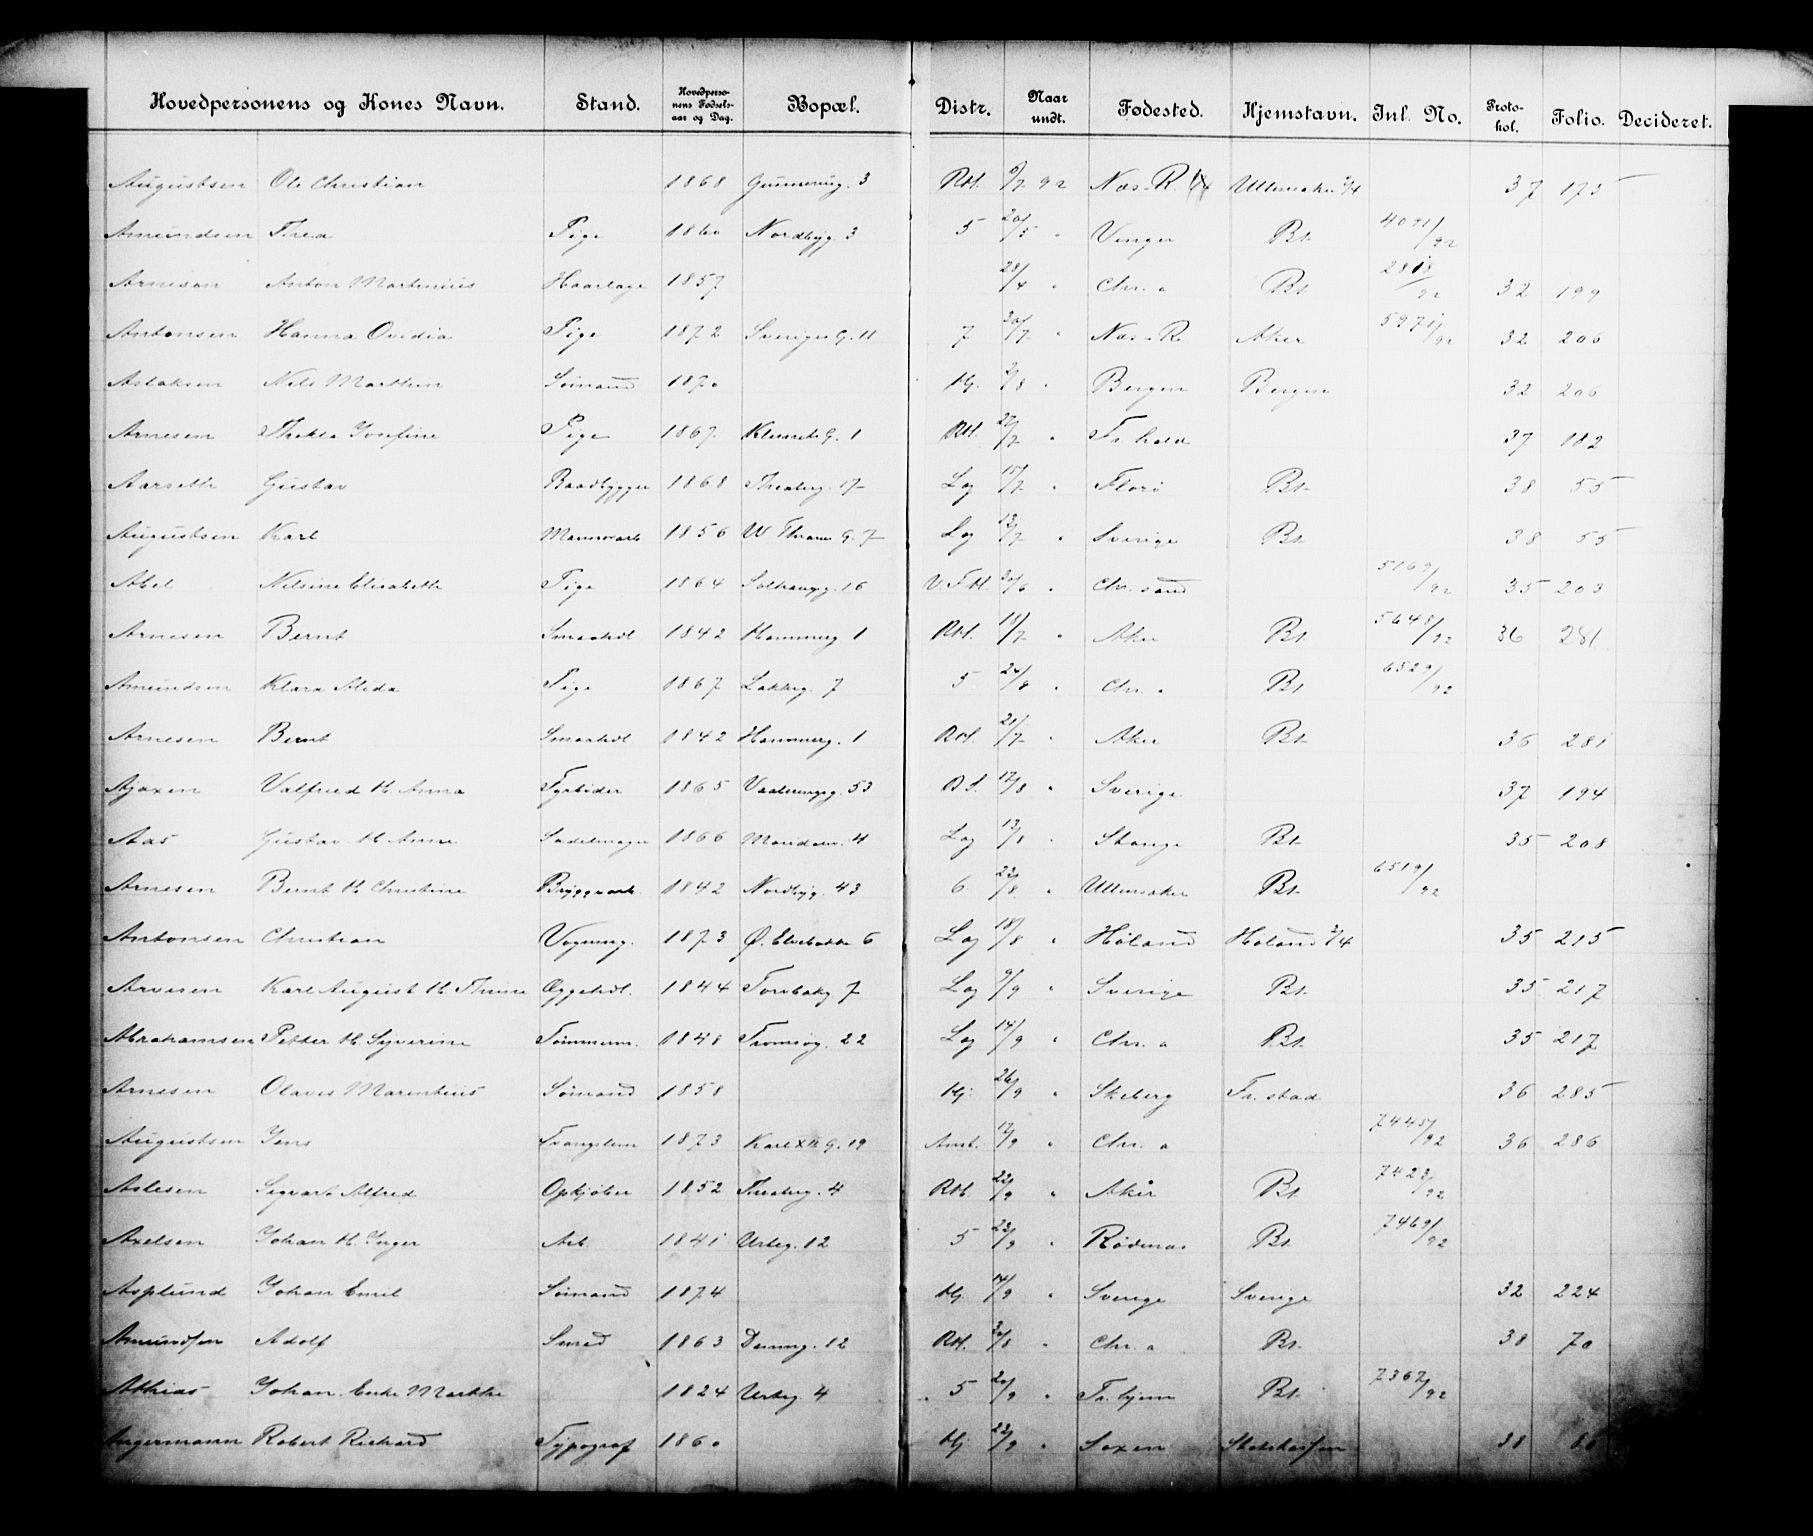 Hovedpersonens og Kones Navn. Stand. Hovedperso-nens Fødsels-aar og Dag. Bopæl. Distr. Naar undt. Fødested. Hjemstavn. Inl. No. Proto-kol. Folio. Decideret.
Augustsen Ole Christian 1868 3 RM. 92 Næs-R. Ullensaker 37 175
Amundsen Thea Pige 1860 Nordbyg. 3 5 20/5 " Vinger Bt. 4091/92
Arnesen Anton Martinius 1857 28/4 " Chr.a Bt. 2818/92 32 199
Antonsen Hanna Ovidia Pige 1872 Sveriges G. 11 7 20/7 " Næs-R. Aker 5971/92 32 206
Aslaksen Nils Martin Sømand 1870 Hj. 2/8 " Bergen Bergen 32 206
Arnesen Thekla Josefine Pige 1867 G. 1 RM. 22/7 " Fr.hald 37 182
Aarseth Gustav Baadbygger 1868 Theaterg. 17 Log 15/7 " Florø Bt. 38 55
Augustsen Karl 1856 W Thrane G. 7 Log 12/7 " Sverige Bt. 38 55
Abel Nilsine Elisabeth Pige 1864 16 V. F.M. 20/6 " Chr.sand 5169/92 35 203
Arnesen Bernt Smaahdl 1842 Hammerg. 1 RM. 18/7 " Aker Bt. 5648/92 36 281
Amundsen Klara Alida Pige 1867 Lakkeg. 7 5 24/8 " Chr.a Bt 6529/92
Arnesen Bernt Smaahdl 1842 Hammerg. 1 RM. 21/7 " Aker Bt. 36 281
Ajaxen Valfried H. Anna Fyrbøder 1865 Vaalerengg. 53 17/8 " Sverige 37 194
Aas Gustav H. Anne Sadelmager 1866 Maridalsv. 4 Log 13/8 " Stange Bt. 35 208
Arnesen Bernt H. Christine Bryggearb. 1842 Nordbyg. 43 6 22/8 " Ullensaker Bt. 6519/92
Antonsen Christian Vognmg. 1873 Ø. Elvebakke 6 Log 18/8 " Høland Høland 35 215
Arvesen Karl August H. Thrine Æggehdl. 1844 Torvbakg 7 Log 9/9 " Sverige Bt. 35 217
Abrahamsen Petter H. Syverine Tømmerm. 1848 Tromsøg. 22 Log 14/9 " Chr.a Bt. 35 217
Arnesen Olaves Marentius Sømand 1858 Hj. 26/9 " Skeberg Fr.stad 36 285
Augustsen Jens Tvangslem 1873 Karl XII G. 19 Amt. 17/9 " Chr.a 7445/92 36 286
Aslesen Sigvart Alfred Opkjøber 1852 Theaterg. 4 RM. 22/9 " Aker Bt 7423/92
Axelsen Johan H. Inger Arb. 1841 Urteg. 12 5 23/9 " Rødenæs Bt. 7469/92
Asplund Johan Emil Sømand 1874 Hj. 14/9 " Sverige Sverige 32 224
Amundsen Adolf Smed 1863 12 RM. 30/8 " Chr.a Bt. 38 70
Athias Johan. Enke Marthe 1824 Urteg 4 5 20/9 " Tr.hjem Bt. 7367/92
Angermann Robert Richard Typograf 1860 Hj 22/9 " Saxen 38 86